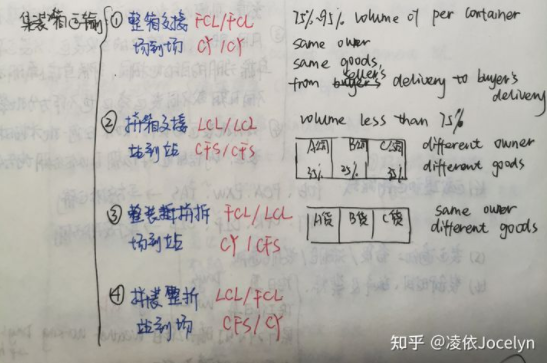 集装箱运输
① 整箱交接 FCL/FCL 75%-95% volume of per container
场到场 CY/CY same owner
same goods,
from seller's delivery to buyer's delivery
② 拼箱交接 LCL/LCL volume less than 75%
站到站 CFS/CFS A货 B货 C货 different owner
35% 25% 35% different goods
③ 整装拼拆 FCL/LCL A货 B货 C货 same owner
场到站 CY/CFS different goods
④ 拼装整拆 LCL/FCL
站到场 CFS/CY
知乎 @凌依Jocelyn